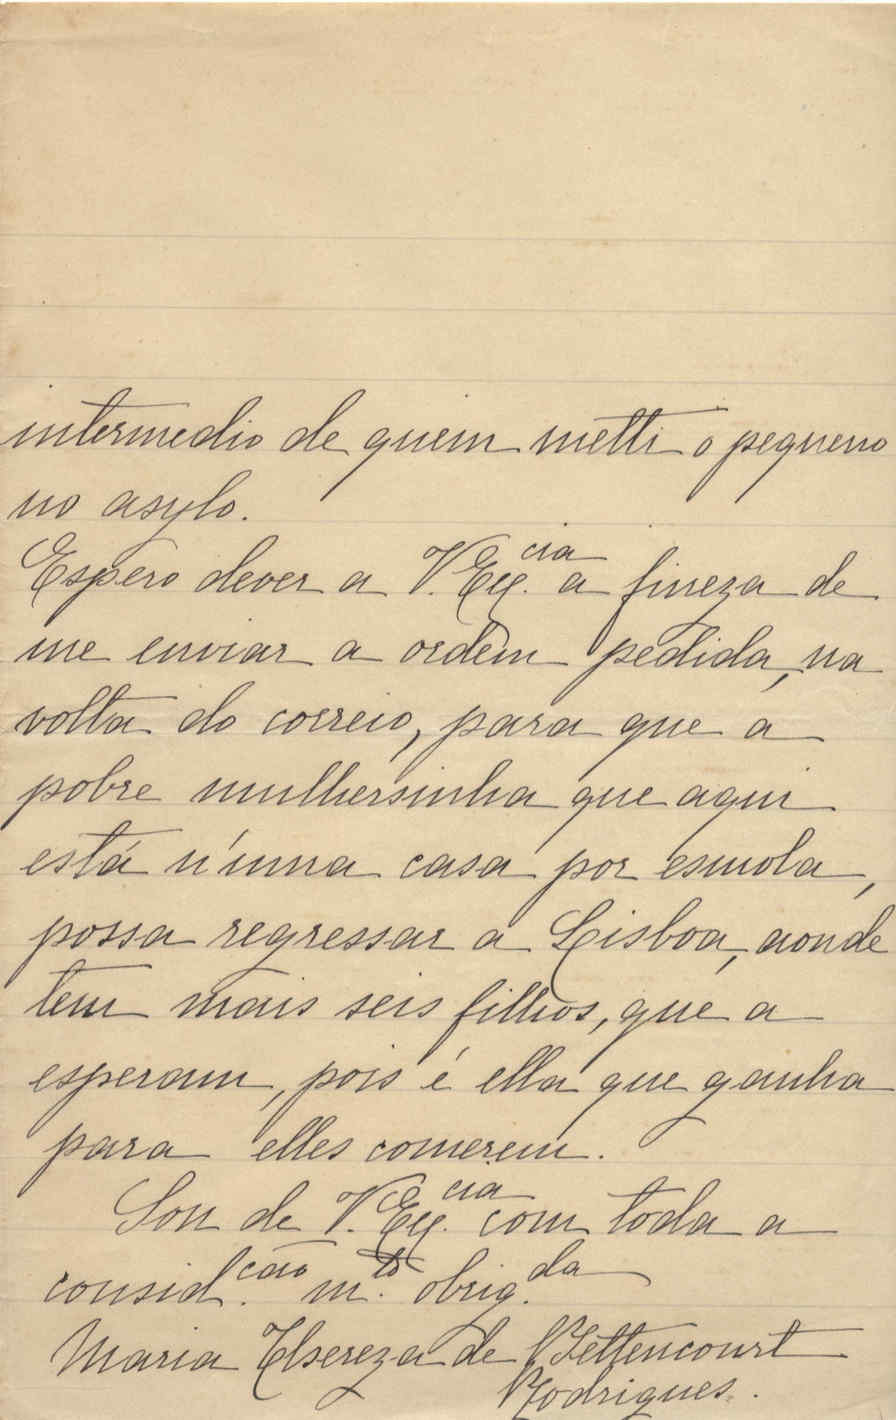 intermedio de quem metti o pequeno
no asylo.
Espero dever a V. Ex.cia a fineza de
me enviar a ordem pedida, na
volta do correio, para que a
pobre mulhersinha que aqui
está n'uma casa por esmola,
possa regressar a Lisboa, aonde
tem mais seis filhos, que a
esperam, pois é ella que ganha
para elles comerem.
Sou de V. Ex.cia com toda a
consid.cão m.to obrig.da
Maria Thereza de Bettencourt
Rodrigues.